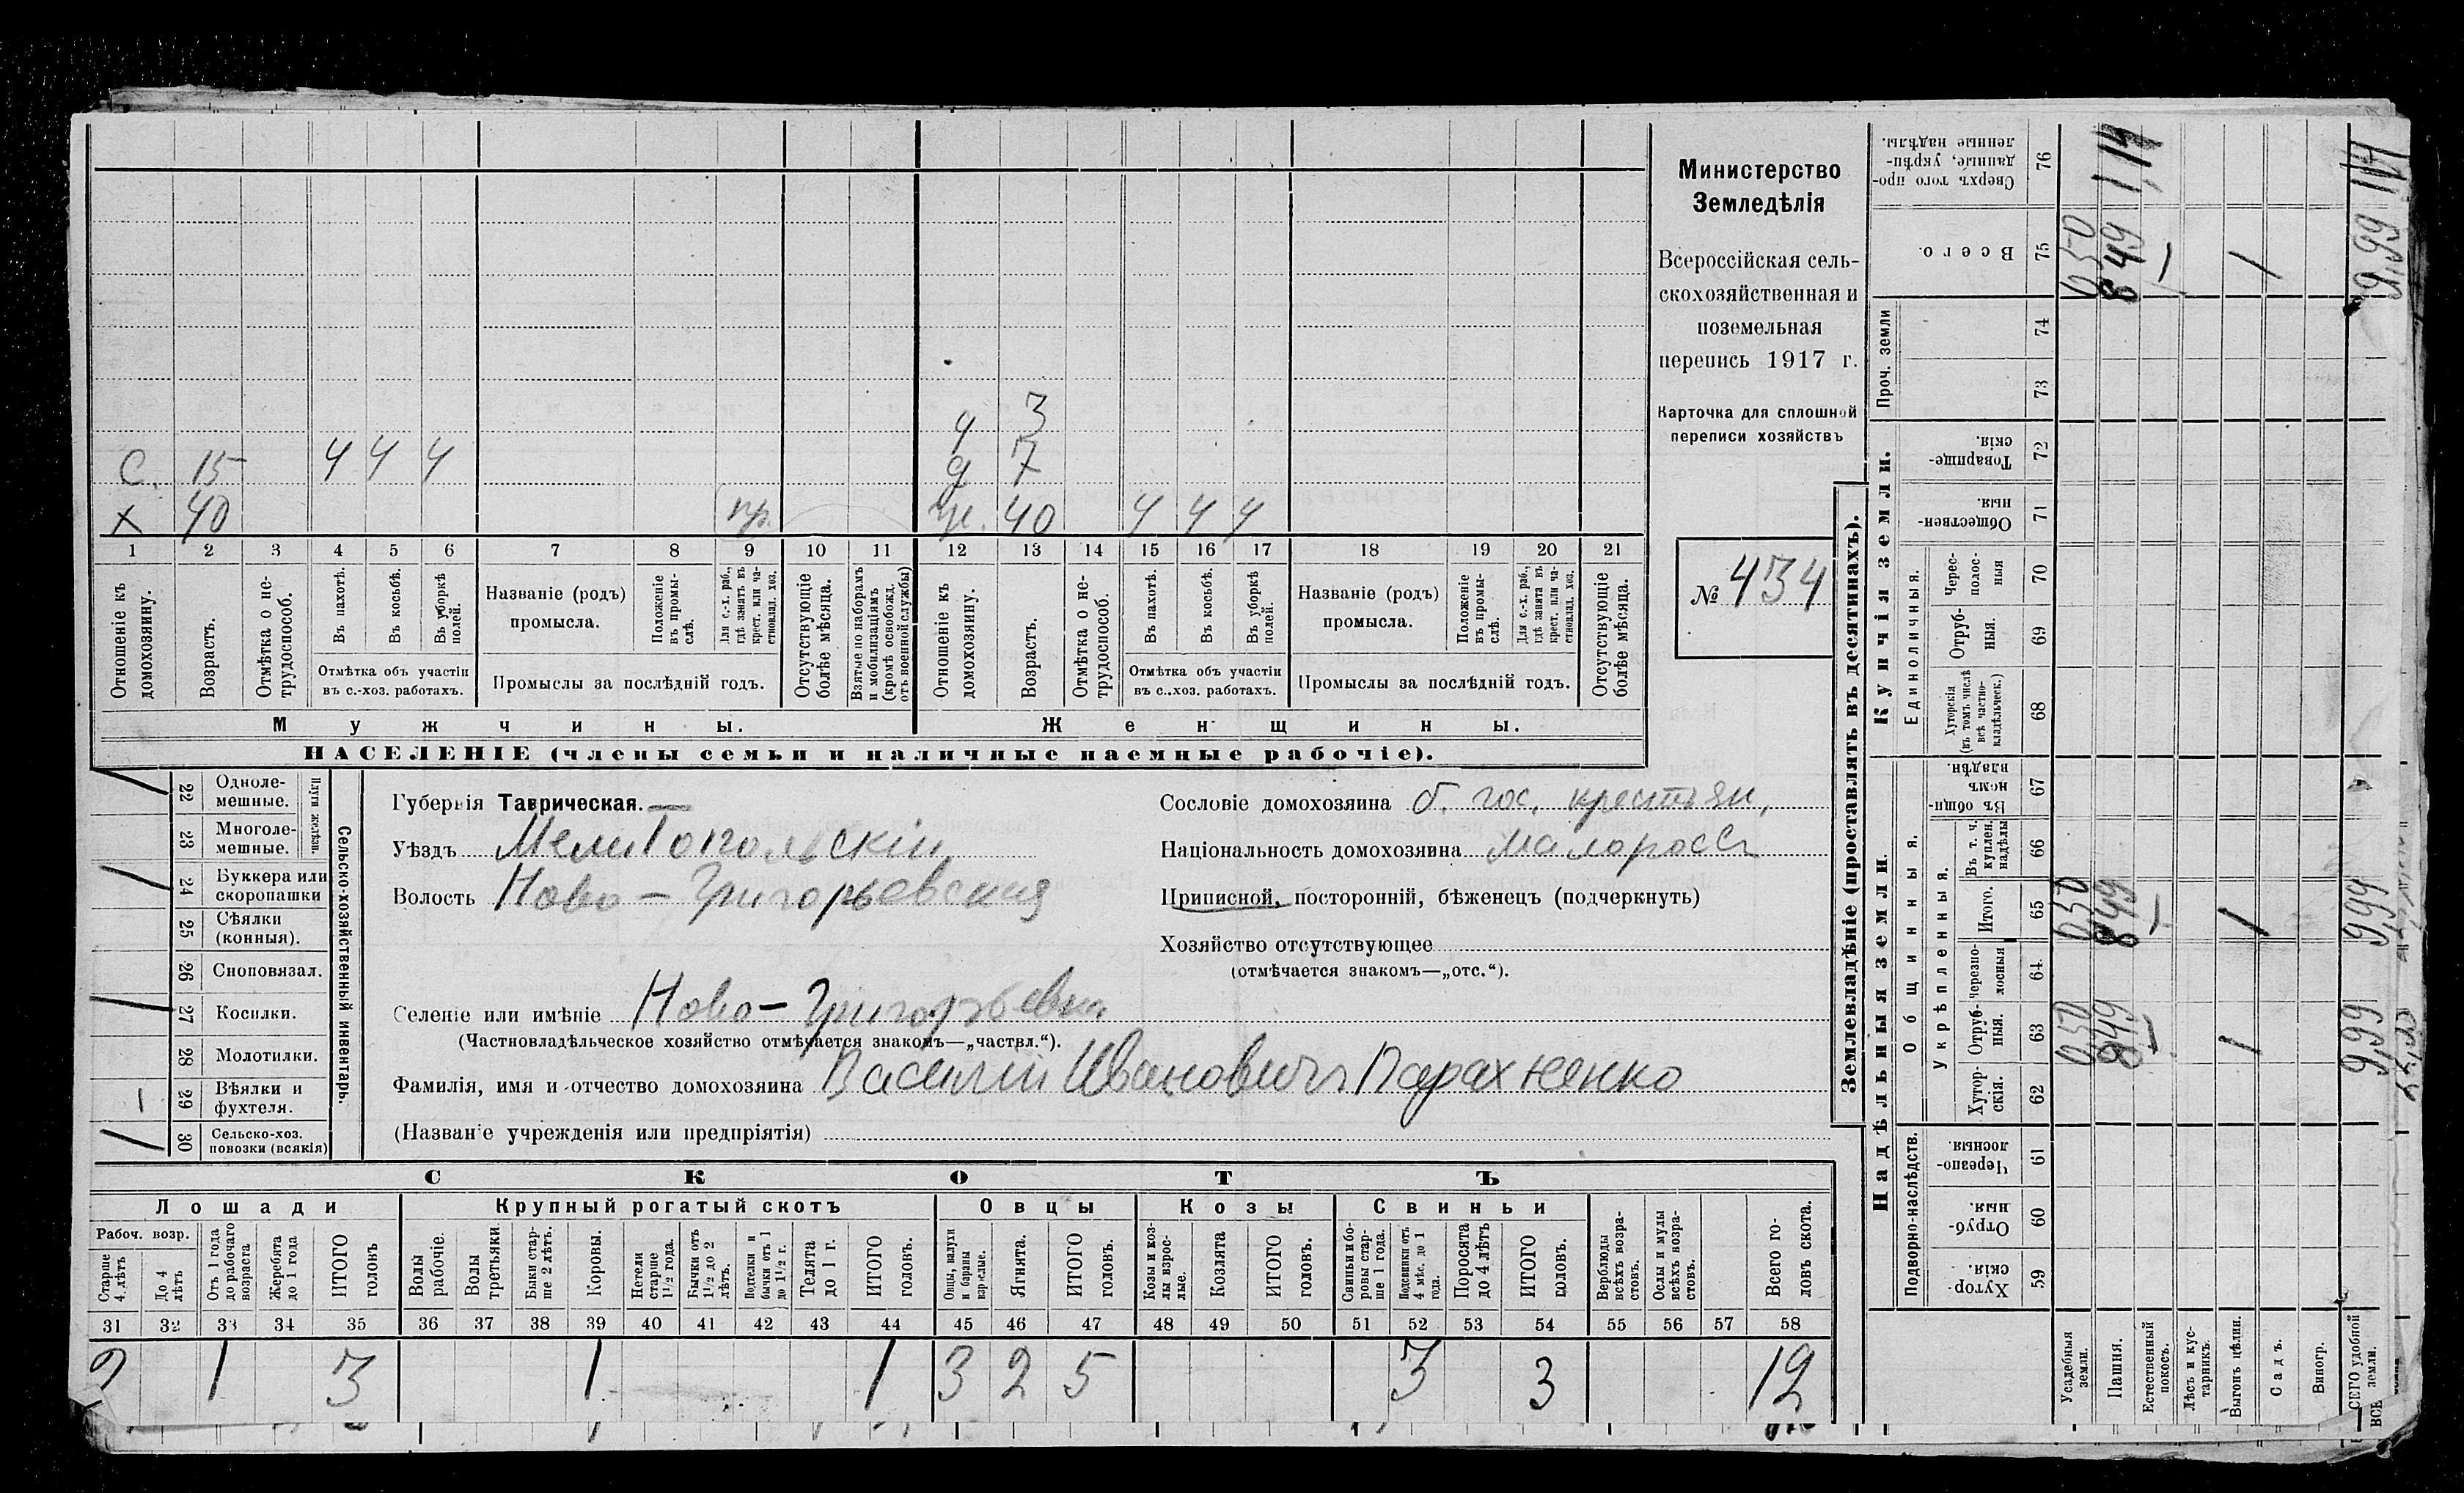 Министерство
Земледѣлія
Всероссійская сель-
скохозяйственная и
поземельная
перепись 1917 г.
Карточка для сплошной
переписи хозяйствъ
№ 434
ч 3
С. 15 ч ч ч д 7
Х 40 пр. ж. 40 ч ч ч
1 2 3 4 5 6 7 8 9 10 11 12 13 14 15 16 17 18 19 20 21
Отношеніе къ домохозяину.
Возрастъ.
Отмѣтка о не-трудоспособ.
Въ пахотѣ.
Въ косьбѣ.
Въ уборкѣ полей.
Отмѣтка объ участіи въ с.-хоз. работахъ.
Названіе (родъ) промысла.
Положеніе въ промы-слѣ.
Для с.-х. раб., гдѣ занятъ въ крест. или ча-стновлад. хоз.
Промыслы за послѣдній годъ.
Отсутствующіе болѣе мѣсяца.
Взятые по наборамъ и мобилизаціямъ (кромѣ освобожд. отъ военной службы)
Отношеніе къ домохозяину.
Возрастъ.
Отмѣтка о не-трудоспособ.
Въ пахотѣ.
Въ косьбѣ.
Въ уборкѣ полей.
Отмѣтка объ участіи въ с.-хоз. работахъ.
Названіе (родъ) промысла.
Положеніе въ промы-слѣ.
Для с.-х. раб., гдѣ занята въ крест. или ча-стновлад. хоз.
Промыслы за послѣдній годъ.
Отсутствующіе болѣе мѣсяца.
Мужчины. Женщины.
НАСЕЛЕНІЕ (члены семьи и наличные наемные рабочіе).
Сельско-хозяйственный инвентарь.
Плуги желѣзн.
22 Одноле-мешные.
23 Многоле-мешные.
24 Буккера или скоропашки
25 Сѣялки (конныя).
26 Сноповязал.
27 Косилки.
28 Молотилки.
1 29 Вѣялки и фухтеля.
30 Сельско-хоз. повозки (всякія)
Губернія Таврическая.
Уѣздъ Мелитопольскій
Волость Ново-Григорьевская
Селеніе или имѣніе Ново-Григорьевка
(Частновладѣльческое хозяйство отмѣчается знакомъ—„частвл.“).
Фамилія, имя и отчество домохозяина Василій Ивановичъ Парахненко
(Названіе учрежденія или предпріятія)
Сословіе домохозяина б. гос. крестьян.
Національность домохозяина малоросс
Приписной, посторонній, бѣженецъ (подчеркнуть)
Хозяйство отсутствующее
(отмѣчается знакомъ—„отс.“).
СКОТЪ
Лошади Крупный рогатый скотъ Овцы Козы Свиньи
Рабоч. возр.
Старше 4 лѣтъ
До 4 лѣтъ
Отъ 1 года до рабочаго возраста
Жеребята до 1 года
ИТОГО головъ
Волы рабочіе.
Волы третьяки
Быки стар-ше 2 лѣтъ.
Коровы.
Нетели старше 1½ года.
Бычки отъ 1½ до 2 лѣтъ.
Подтелки и бычки отъ 1 до 1½ г.
Телята до 1 г.
ИТОГО головъ.
Овцы, валухи и бараны взрослые.
Ягнята.
ИТОГО головъ.
Козы и коз-лы взрос-лые.
Козлята
ИТОГО головъ.
Свиньи и бо-ровы стар-ше 1 года.
Подсвинки отъ 4 мѣс. до 1 года.
Поросята до 4 лѣтъ
ИТОГО головъ.
Верблюды всѣхъ возра-стовъ.
Ослы и мулы всѣхъ возра-стовъ.
Всего го-ловъ скота.
31 32 33 34 35 36 37 38 39 40 41 42 43 44 45 46 47 48 49 50 51 52 53 54 55 56 57 58
2 1 3 1 1 3 2 5 3 3 12
Землевладѣніе (проставлять въ десятинахъ).
Надѣльныя земли. Купчія земли.
Подворно-наслѣдств.
Общинныя.
Укрѣпленныя.
Единоличныя.
Проч. земли
59 Хутор-скія.
60 Отруб-ныя.
61 Черезпо-лосныя
62 Хутор-скія.
63 Отруб-ныя.
64 Черезпо-лосныя
65 Итого.
66 Въ т. ч. куплен. надѣлы
67 Въ общи-номъ владѣн.
68 Хуторскія (въ томъ числѣ всѣ частно-владѣльческ.)
69 Отруб-ныя.
70 Черес-полос-ныя
71 Обществен-ныя
72 Товарище-скія.
73
74
75 Всего.
76 Сверхъ того про-данные, укрѣп-ленные надѣлы.
Усадебныя земли. 0,50 0,50 0,50
Пашня. 8,49 8,49 8,49 1,14
Естественный покосъ.
Лѣсъ и кус-тарникъ.
Выгонъ цѣлин. 1 1 1
Садъ.
Виногр.
ВСЕГО удобной земли. 9,99 9,99 9,99 1,14